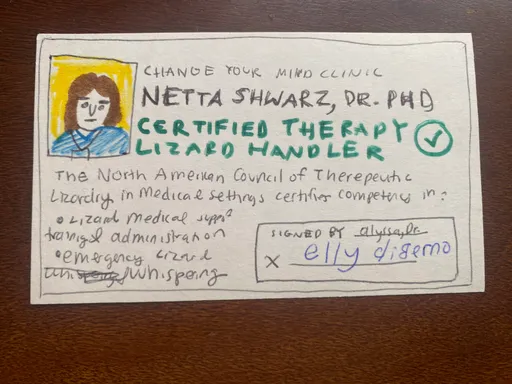 CHANGE YOUR MIND CLINIC
NETTA SHWARZ, DR. PHD
CERTIFIED THERAPY
LIZARD HANDLER
The North American Council of Therepeutic
Lizarding in Medical Settings certifies competency in:
• Lizard medical
administration
• emergency lizard
whispering
SIGNED BY
X elly digerno